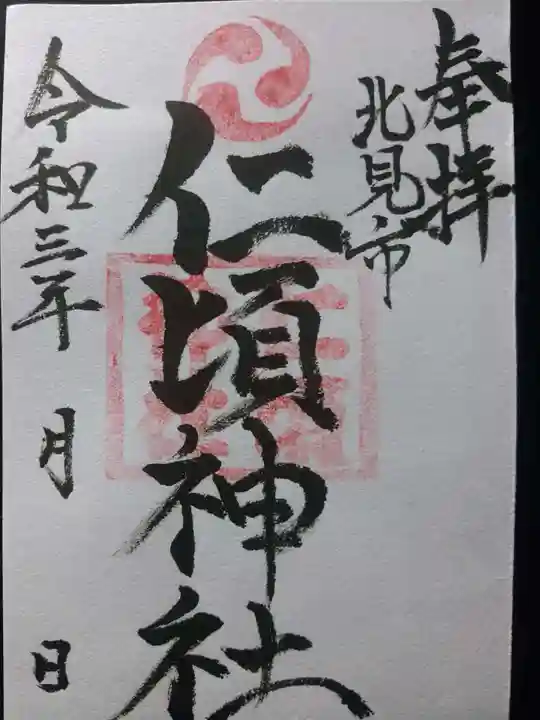 奉拝
北見市
仁頃神社
令和三年 月 日